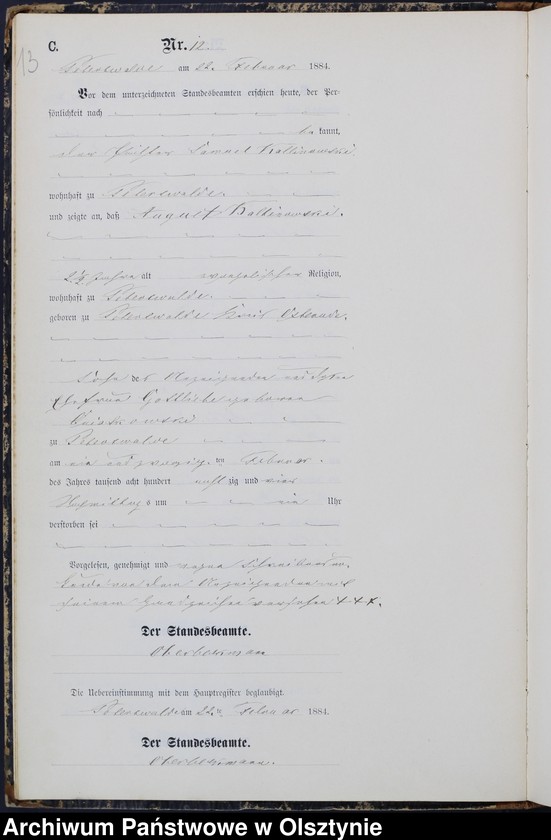 13
C. Nr. 12.
Peterswalde am 22. Februar 1884.
Vor dem unterzeichneten Standesbeamten erschien heute, der Per-
sönlichkeit nach
be kannt,
der Samuel Kallinowski
wohnhaft zu Peterswalde
und zeigte an, daß August Kallinowski.
2 Jahre alt evangelischer Religion,
wohnhaft zu Peterswalde
geboren zu Peterswalde Kreis Osterode,
Sohn des Anzeigenden und
Ehefrau Gottliebe geborene
zu Peterswalde
am ein und zwanzig ten Februar
des Jahres tausend acht hundert acht zig und vier
Nachmittag s um ein Uhr
verstorben sei
Vorgelesen, genehmigt und wegen Schreibens un-
kunde von dem Anzeigenden mit
seinem Handzeichen versehen +++.
Der Standesbeamte.
Die Uebereinstimmung mit dem Hauptregister beglaubigt.
Peterswalde am 22. Februar 1884.
Der Standesbeamte.
Archiwum Państwowe w Olsztynie